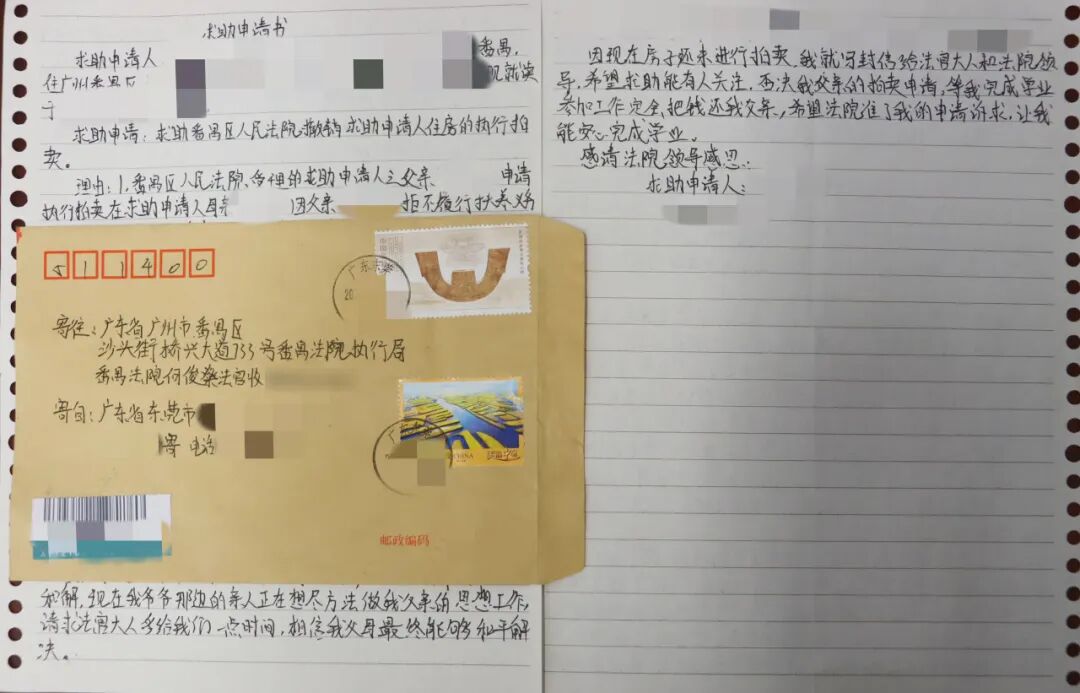 求助申请书
求助申请人
番禺,
住广州番禺区
现就读
于
求助申请:求助番禺区人民法院撤销求助申请人住房的执行拍
卖。
理由:1.番禺区人民法院、合理的求助申请人之父亲 申请
执行拍卖在求助申请人母亲 因父亲 拒不履行扶养义务
511400
中国
寄往:广东省广州市番禺区
沙头街桥兴大道733号番禺法院执行局
番禺法院何俊燊法官收
寄自:广东省东莞市
寄 电话
CHINA
邮政编码
和解,现在我爷爷那边的亲人正在想尽方法做我父亲的思想工作,
请求法官大人多给我们一点时间,相信我父母最终能够和平解
决。
因现在房子还未进行拍卖,我就写封信给法官大人和法院领
导,希望求助能有人关注,否决我父亲的拍卖申请,等我完成学业
参加工作定会把钱还我父亲,希望法院准了我的申请诉求,让我
能安心完成学业。
感请法院领导感恩.
求助申请人: